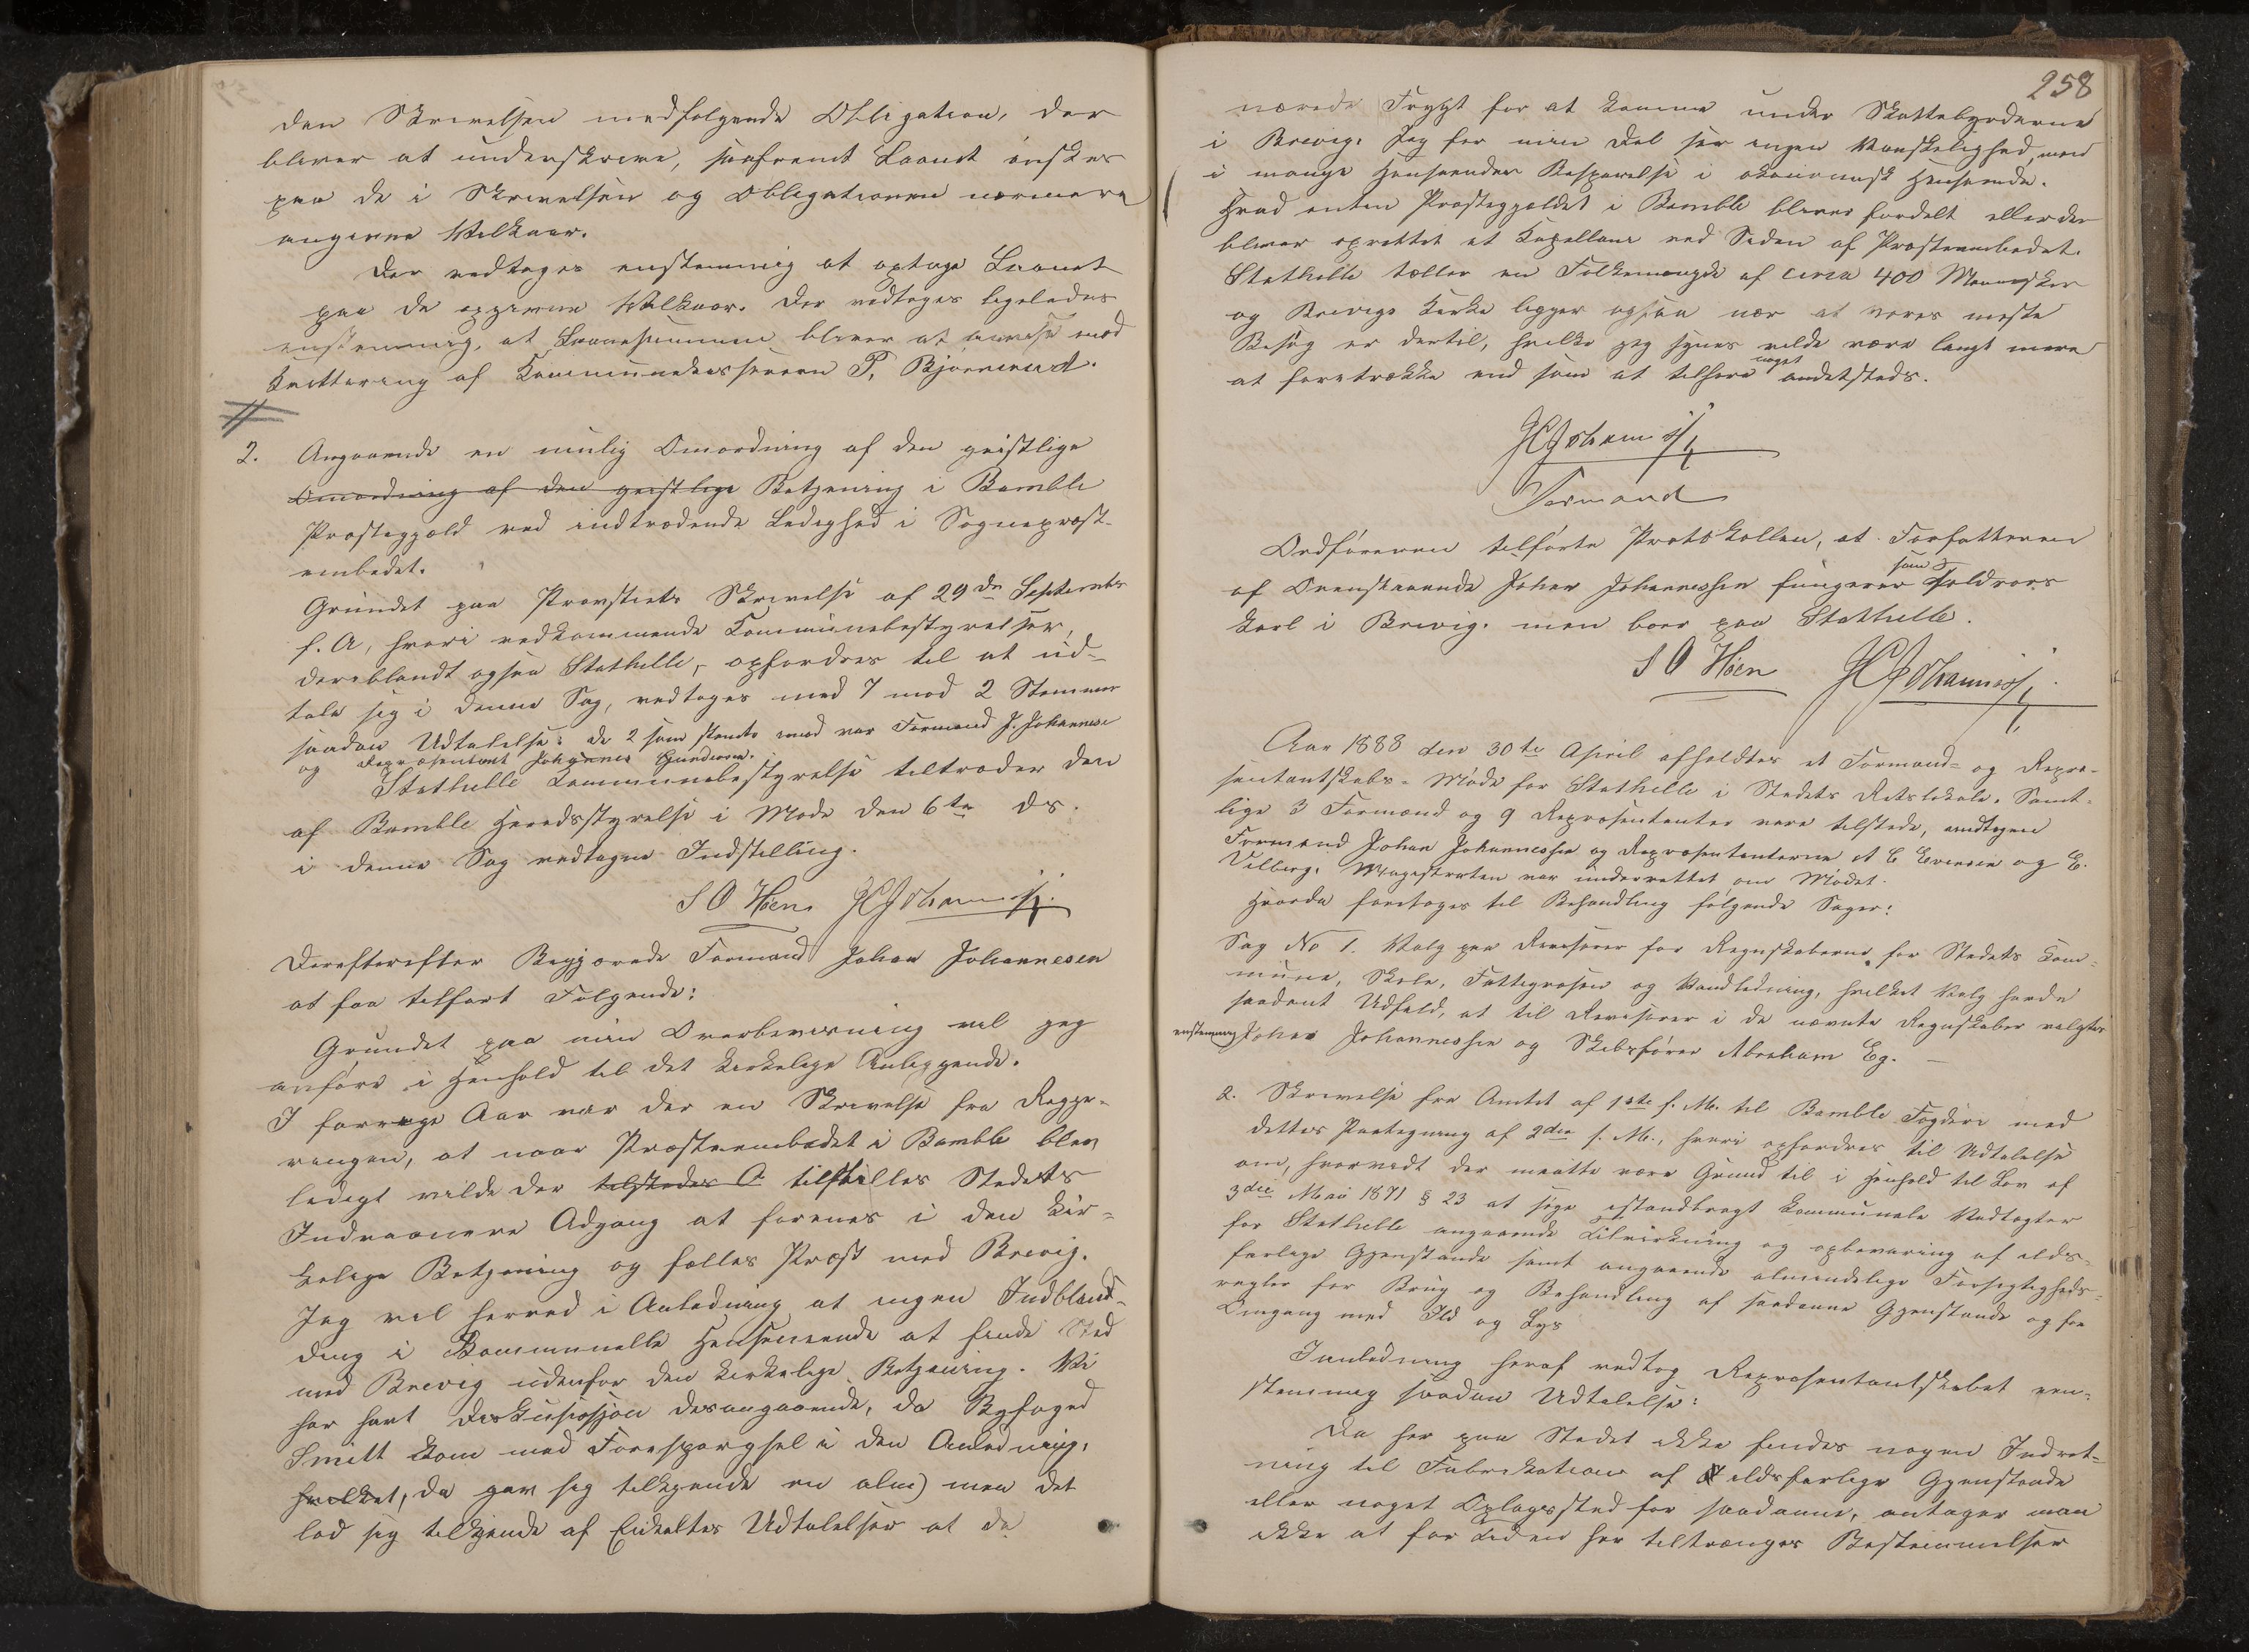 den Skrivelsen medfølgende Obligation, der
bliver at underskrive, saafremt Laanet ønskes
paa de i Skrivelsen og Obligationen nærmere
angivne Vilkaar.
Der vedtoges enstemmig at optage Laanet
paa de opgivne Vilkaar. Der vedtoges ligeledes
enstemmig, at Laanesummen bliver at anvise mod
Kvittering af Kommunekassereren P. Bjørnerud.
2. Angaaende en mulig Omordning af den geistlige
Omordning af den geistlige Betjening i Bamble
Præstegjæld ved indtrædende Ledighed i Sognepræst-
embedet.
Grundet paa Provstiets Skrivelse af 29de Septembr
f. A, hvori vedkommende Kommunebestyrelser,
dereblandt ogsaa Stathelle, opfordres til at ud-
tale sig i denne Sag, vedtoges med 7 mod 2 Stemmer
saadan Udtalelse: de 2 som stemte imod var Formand J. Johannesen
og Repræsentant Johannes Gundersen.
Stathelle Kommunebestyrelse tiltræder den
af Bamble Heredsstyrelse i Møde den 6te ds.
i denne Sag vedtagne Indstilling.
S O Høen HCJohanness.
Derefterefter Begjærede Formand Johan Johannesen
at faa tilført Følgende:
Grundet paa min Overbevisning vil jeg
anføre i Henhold til det kirkelige Anliggende.
I forrige Aar var der en Skrivelse fra Regje-
ringen, at naar Præsteembedet i Bamble blev
ledigt vilde der tilstedes A tilstilles Stedets
Indvaanere Adgang at forenes i den kir-
kelige Betjening og fælles Præst med Brevig.
Jeg vil herved i Anledning at ingen Indbland-
ding i Kommunelle Henseende at finde Sted
med Brevig udenfor den kirkelige Betjening. Vi
har havt Diskusiosjon desangaaende, da Byfoged
Smitt kom med Forespørgsel i den Anledning,
hvilket, da gav sig tilkjende en alm) men det
lod sig tilkjende af Enkeltes Udtalelser at de
258
nærede Frygt for at komme under Skattebyrderne
i Brevig. Jeg for min Del ser ingen Vanskelighed, men
i mange Henseender Besparelse i økonomisk Henseende.
Hvad enten Præstegjældet i Bamble bliver fordelt eller der
bliver oprettet et Kapellani ved Siden af Præsteembedet.
Stathelle tæller en Folkemængde af circa 400 Mennesker
og Brevigs Kirke ligger ogsaa nær at vores meste
Besøg er dertil, hvilke jeg synes vilde være langt mere
at foretrække end som at tilhøre noget andetsteds.
HCJohanness
Formand
Ordføreren tilførte Protokollen, at Forfatteren
af Ovenstaaende Johan Johannessen fungerer som Toldroers
karl i Brevig. men boer paa Stathelle.
S O Høen HCJohanness.
Aar 1888 den 30te April afholdtes et Formand- og Repræ-
sentantskabs-Møde for Stathelle i Stedets Retslokale. Samt-
lige 3 Formænd og 9 Repræsentanter vare tilstede, undtagen
Formand Johan Johannessen og Repræsentanterne A E Evensen og E.
Vilberg. Magistraten var underrettet om Mødet.
Hvorda foretoges til Behandling følgende Sager:
Sag No 1. Valg paa Revisorer for Regnskaberne for Stedets Kom-
mune, Skole, Fattigvæsen og Vandledning, hvilket Valg havde
saadant Udfald, at til Revisorer i de nævnte Regnskaber valgtes
enstemmig Johan Johannessen og Skibsfører Abraham Eg. —
2. Skrivelse fra Amtet af 1ste f. M. til Bamble Fogderi med
dettes Paategning af 2den s. M., hvori opfordres til Udtalelse
om, hvorvidt der maatte være Grund til i Henhold til Lov af
3die Mai 1871 § 23 at søge istandbragt kommunale Vedtægter
for Stathelle angaaende Tilvirkning og opbevaring af ilds-
farlige Gjenstande samt angaaende almindelige Forsigtigheds-
regler for Brug og Behandling af saadanne Gjenstande og for
Omgang med Ild og Lys
Ianledning heraf vedtog Repræsentantskabet een-
stemmig saadan Udtalelse:
Da her paa Stedet ikke findes nogen Indret-
ning til Fabrikation af ildsfarlige Gjenstande
eller noget Oplagssted for saadanne, antager man
ikke at for Tiden her tiltrænges Bestemmelser